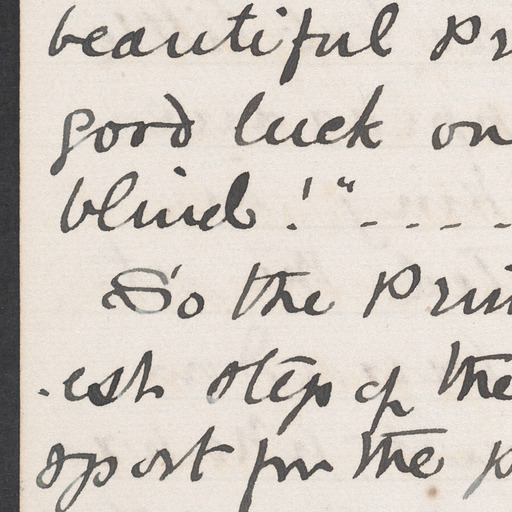 beautiful Pr
good luck on
blind!" - - - -
So the Prin
-est step of the
sport for the p